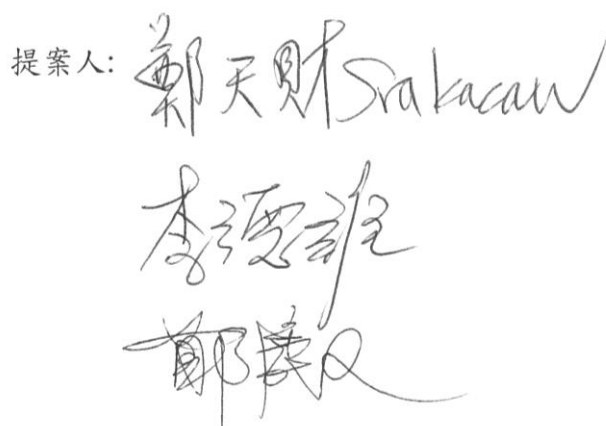 提案人: 鄭天財 Sra Kacaw
李德維